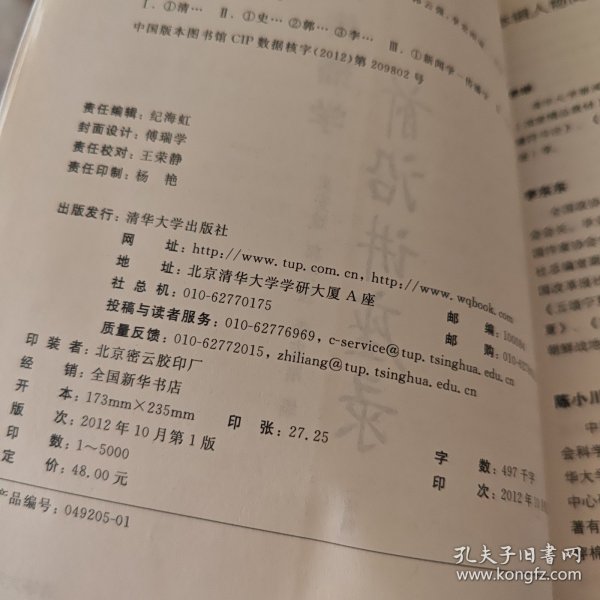 Ⅰ. ①清… Ⅱ. ①史… ②郭… ③李… Ⅲ. ①新闻学-传播学
中国版本图书馆 CIP 数据核字(2012)第 209802 号
责任编辑：纪海虹
封面设计：傅瑞学
责任校对：王荣静
责任印制：杨 艳
出版发行：清华大学出版社
网 址：http://www.tup.com.cn, http://www.wqbook.com
地 址：北京清华大学学研大厦 A 座 邮 编：100084
社 总 机：010-62770175 邮 购：010-62
投稿与读者服务：010-62776969, c-service@tup.tsinghua.edu.cn
质量反馈：010-62772015, zhiliang@tup.tsinghua.edu.cn
印 装 者：北京密云胶印厂
经 销：全国新华书店
开 本：173mm×235mm 印 张：27.25 字 数：497千字
版 次：2012 年 10 月第 1 版 印 次：2012年10
印 数：1～5000
定 价：48.00 元
产品编号：049205-01
前沿讲座录
李东东
全国政协
国作家协会
社总编室
国改革
《五
夏》、《
朝鲜战地
陈小川
中
会科学
华大学
中心
著有
孔夫子旧书网
www.kongfz.com